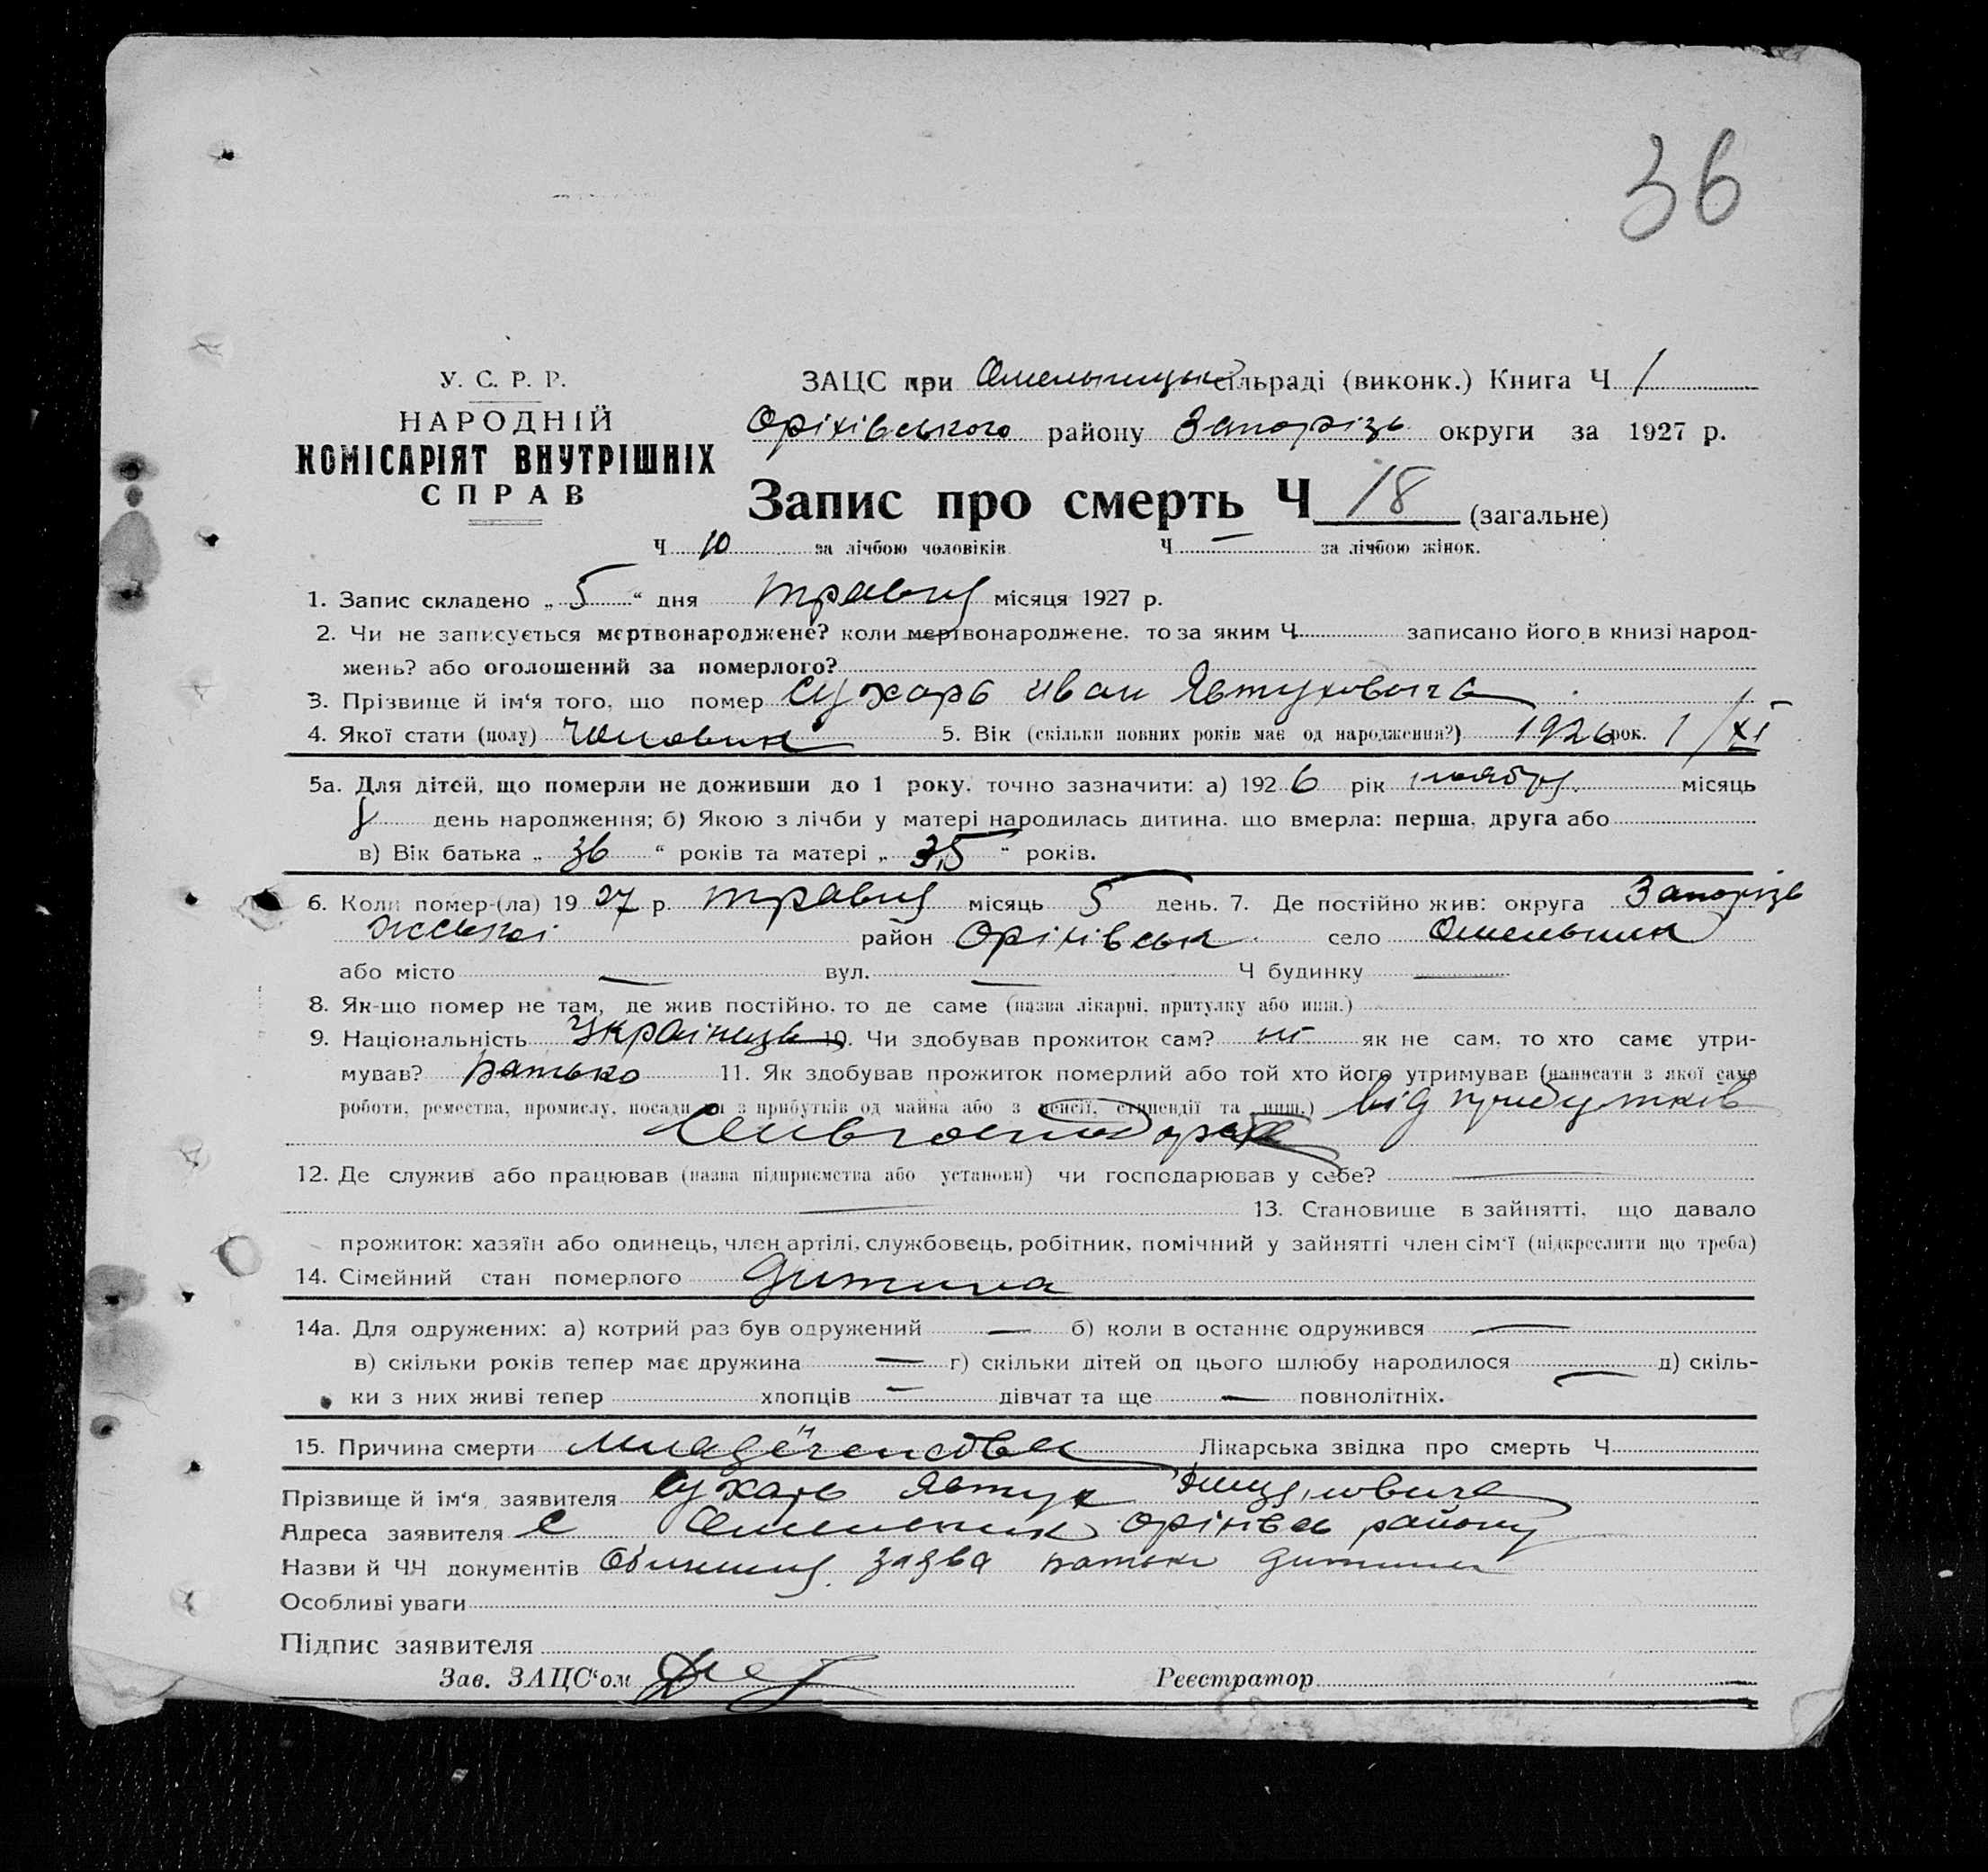 36
У. С. Р. Р.
НАРОДНІЙ
КОМІСАРІЯТ ВНУТРІШНІХ
СПРАВ
ЗАЦС при Омельницькі сільраді (виконк.) Книга Ч 1
Оріхівського району Запорізь округи за 1927 р.
Запис про смерть Ч 18 (загальне)
Ч 10 за лічбою чоловіків Ч — за лічбою жінок.
1. Запис складено „ 5 “ дня травня місяця 1927 р.
2. Чи не записується мертвонароджене? коли мертвонароджене, то за яким Ч записано його в книзі народ-
жень? або оголошений за померлого?
3. Прізвище й ім‘я того, що помер Сухарь Иван Явтухович
4. Якої стати (полу) Чоловик 5. Вік (скільки повних років має од народження?) 1926 рок. 1/XI
5а. Для дітей, що померли не доживши до 1 року, точно зазначити: а) 192 6 рік ноября місяць
1 день народження; б) Якою з лічби у матері народилась дитина, що вмерла: перша, друга або
в) Вік батька „ 36 “ років та матері „ 35 “ років.
6. Коли помер-(ла) 19 27 р. травня місяць 5 день. 7. Де постійно жив: округа Запорізь
жської район Оріхівськ село Омельник
або місто — вул. — Ч будинку —
8. Як-що помер не там, де жив постійно, то де саме (назва лікарні, притулку або инш.)
9. Національність Украінець 10. Чи здобував прожиток сам? ні як не сам, то хто саме утри-
мував? батько 11. Як здобував прожиток померлий або той хто його утримував (написати з якої саме
роботи, ремества, промислу, посади чи з прибутків од майна або з пенсії, стипендії та инш.) від прибутків
12. Де служив або працював (назва підприємства або установи) чи господарював у себе? —
— 13. Становище в зайнятті, що давало
прожиток: хазяїн або одинець, член артілі, службовець, робітник, помічний у зайнятті член сім‘ї (підкреслити що треба)
14. Сімейний стан померлого дитина
14а. Для одружених: а) котрий раз був одружений — б) коли в останнє одружився —
в) скільки років тепер має дружина — г) скільки дітей од цього шлюбу народилося — д) скіль-
ки з них живі тепер хлопців — дівчат та ще — повнолітніх.
15. Причина смерти Лікарська звідка про смерть Ч
Прізвище й ім‘я заявителя Сухарь Явтух
Адреса заявителя С Омельник Оріхівсь району
Назви й ЧЧ документів заява батька дитини
Особливі уваги
Підпис заявителя
Зав. ЗАЦС‘ом Реєстратор